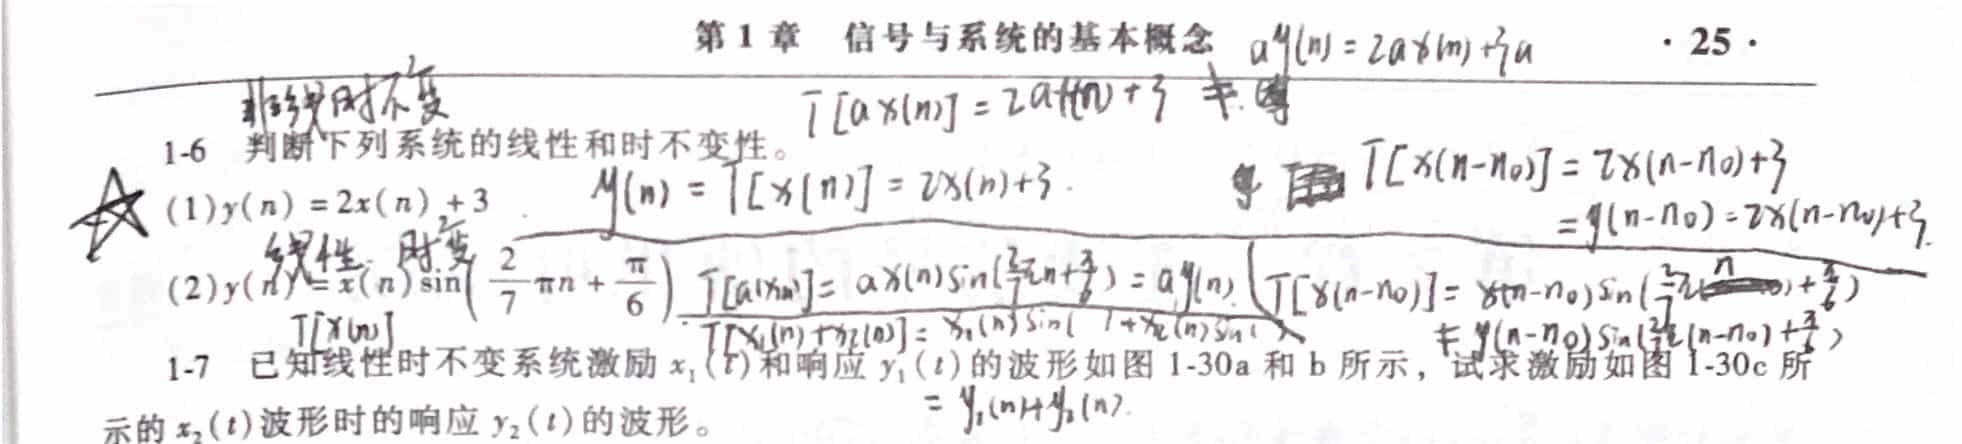 第1章 信号与系统的基本概念 ay(n)=2ax(n)+3a ·25·
非线 时不变 T[ax(n)]=2ax(n)+3 ≠
1-6 判断下列系统的线性和时不变性。
T[x(n-n₀)]=2x(n-n₀)+3
(1)y(n)=2x(n)+3 y(n)=T[x(n)]=2x(n)+3.
=y(n-n₀)=2x(n-n₀)+3.
线性 时变
(2)y(n)=x(n)sin(2/7 πn+π/6) T[ax(n)]=ax(n)sin(2/7πn+π/6)=ay(n). T[x(n-n₀)]=x(n-n₀)sin(2/7πn+π/6)
T[x(n)] T[x₁(n)+x₂(n)]=x₁(n)sin( )+x₂(n)sin( ) ≠y(n-n₀)sin(2/7π(n-n₀)+π/6)
1-7 已知线性时不变系统激励 x₁(t)和响应 y₁(t)的波形如图 1-30a 和 b 所示，试求激励如图 1-30c 所
=y₁(n)+y₂(n).
示的 x₂(t)波形时的响应 y₂(t)的波形。